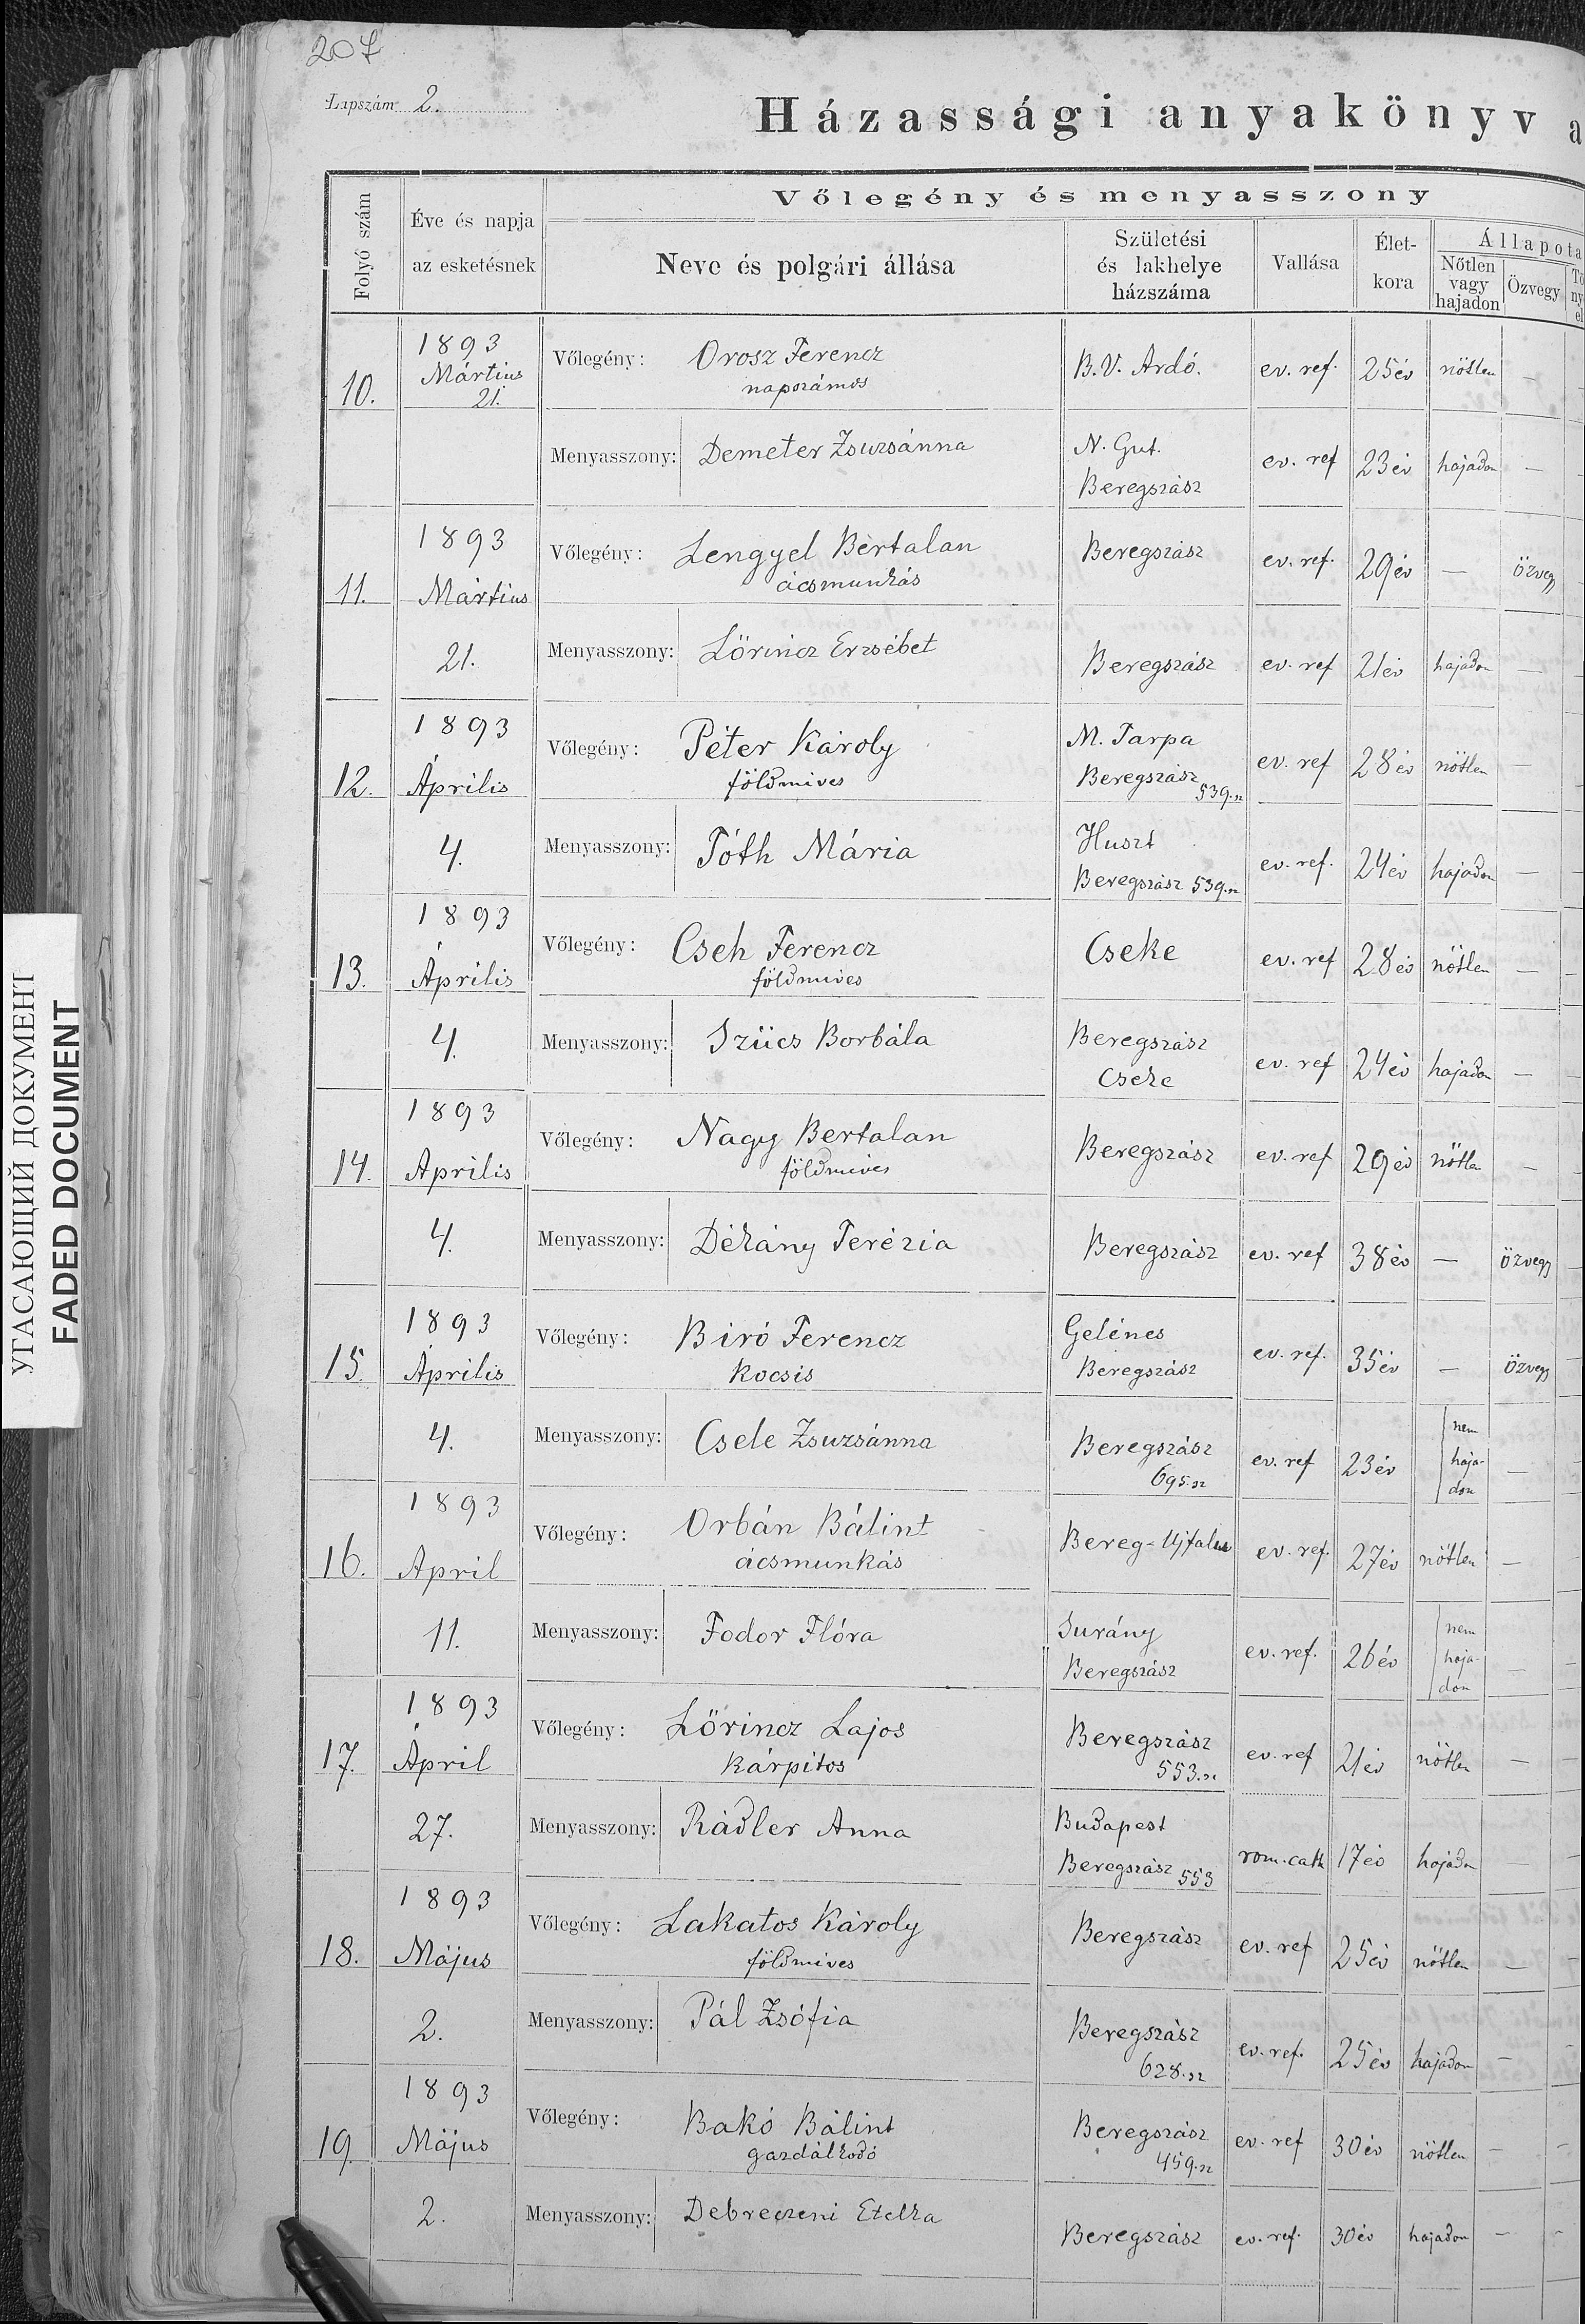 207
Lapszám 2.
Házassági anyakönyv a
Folyó szám
Éve és napja
az esketésnek
Vőlegény és menyasszony
Neve és polgári állása
Születési
és lakhelye
házszáma
Vallása
Élet-
kora
Állapota
Nőtlen
vagy
hajadon
Özvegy
10.
1893
Mártius
21.
Vőlegény: Orosz Ferencz
napszámos
B.V. Ardó. ev. ref. 25 év nőtlen —
Menyasszony: Demeter Zsuzsánna
N. Gut.
Beregszász
ev. ref 23 év hajadon —
11.
1893
Mártius
21.
Vőlegény: Lengyel Bertalan
ácsmunkás
Beregszász ev. ref. 29 év — özvegy
Menyasszony: Lőrincz Erzsébet
Beregszász ev. ref 21 év hajadon —
12.
1893
Április
4.
Vőlegény: Péter Károly
földmives
M. Tarpa
Beregszász
539.sz
ev. ref 28 év nőtlen —
Menyasszony: Tóth Mária
Huszt
Beregszász 539.sz
ev. ref. 24 év hajadon —
13.
1893
Április
4.
Vőlegény: Cseh Ferencz
földmives
Cseke ev. ref 28 év nőtlen —
Menyasszony: Szücs Borbála
Beregszász
Cseke
ev. ref 24 év hajadon —
14.
1893
Április
4.
Vőlegény: Nagy Bertalan
földmives
Beregszász ev. ref 29 év nőtlen —
Menyasszony: Dékány Terézia
Beregszász ev. ref 38 év — özvegy
15
1893
Április
4.
Vőlegény: Biró Ferencz
kocsis
Gelénes
Beregszász
ev. ref. 35 év — özvegy
Menyasszony: Csele Zsuzsánna
Beregszász
695.sz
ev. ref 23 év
nem
haja-
don
—
16.
1893
April
11.
Vőlegény: Orbán Bálint
ácsmunkás
Bereg-Ujfalu ev. ref. 27 év nőtlen —
Menyasszony: Fodor Flóra
Surány
Beregszász
ev. ref. 26 év
nem
haja-
don
17.
1893
Ápril
27.
Vőlegény: Lőrincz Lajos
kárpitos
Beregszász
553.sz
ev. ref 21 év nőtlen —
Menyasszony: Rádler Anna
Budapest
Beregszász 553
rom. cath 17 év hajadon
18.
1893
Május
2.
Vőlegény: Lakatos Károly
földmives
Beregszász ev. ref 25 év nőtlen —
Menyasszony: Pál Zsófia
Beregszász
628.sz
ev. ref. 25 év hajadon —
19.
1893
Május
2.
Vőlegény: Bakó Bálint
gazdálkodó
Beregszász
459.sz
ev. ref 30 év nőtlen —
Menyasszony: Debreczeni Etelka
Beregszász ev. ref. 30 év hajadon —
УГАСАЮЩИЙ ДОКУМЕНТ
FADED DOCUMENT